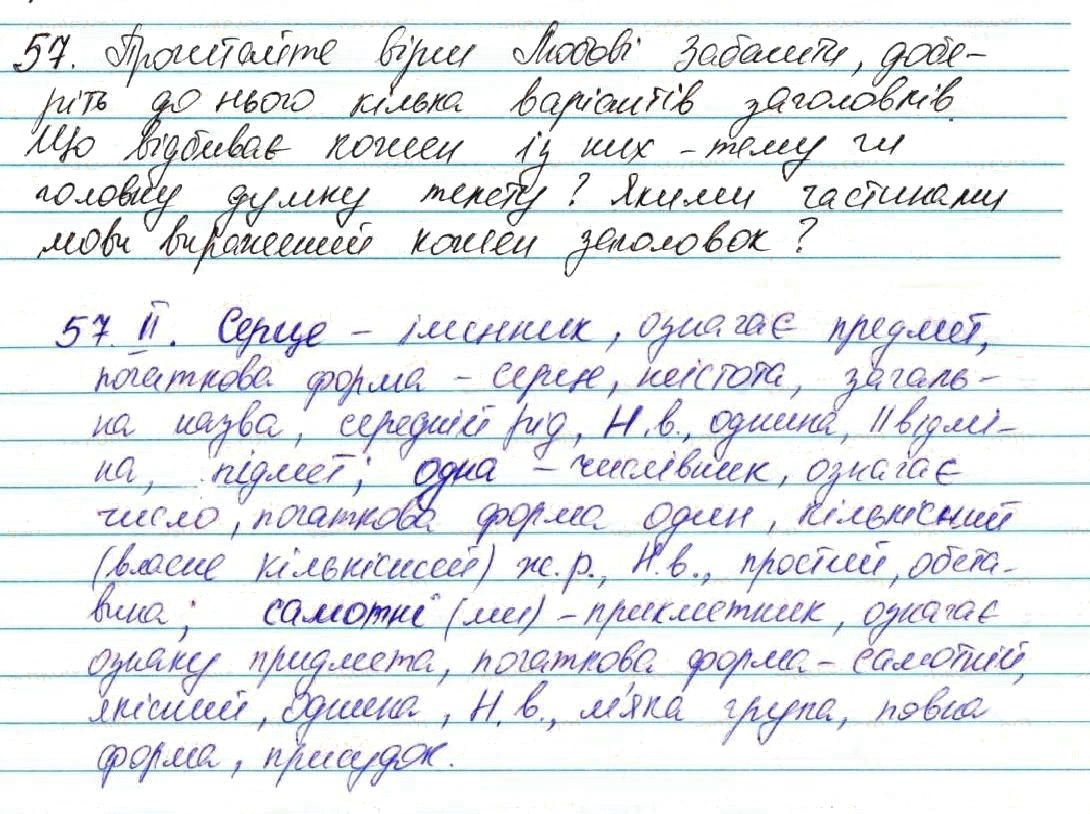 57. Прочитайте вірш Любові Забашти, добе-
ріть до нього кілька варіантів заголовків.
Що відбиває кожен із них – тему чи
головну думку тексту? Якими частинами
мови виражений кожен заголовок?
57. II. Серце – іменник, означає предмет,
початкова форма – серце, неістота, загаль-
на назва, середній рід, Н.в., однина, II відмі-
на, підмет; одна – числівник, означає
число, початкова форма один, кількісний
(власне кількісний) ж.р., Н.в., простий, обста-
вина; самотні (ми) – прикметник, означає
ознаку придмета, початкова форма – самотній,
якісний, однина, Н.в., м'яка група, повна
форма, присудок.